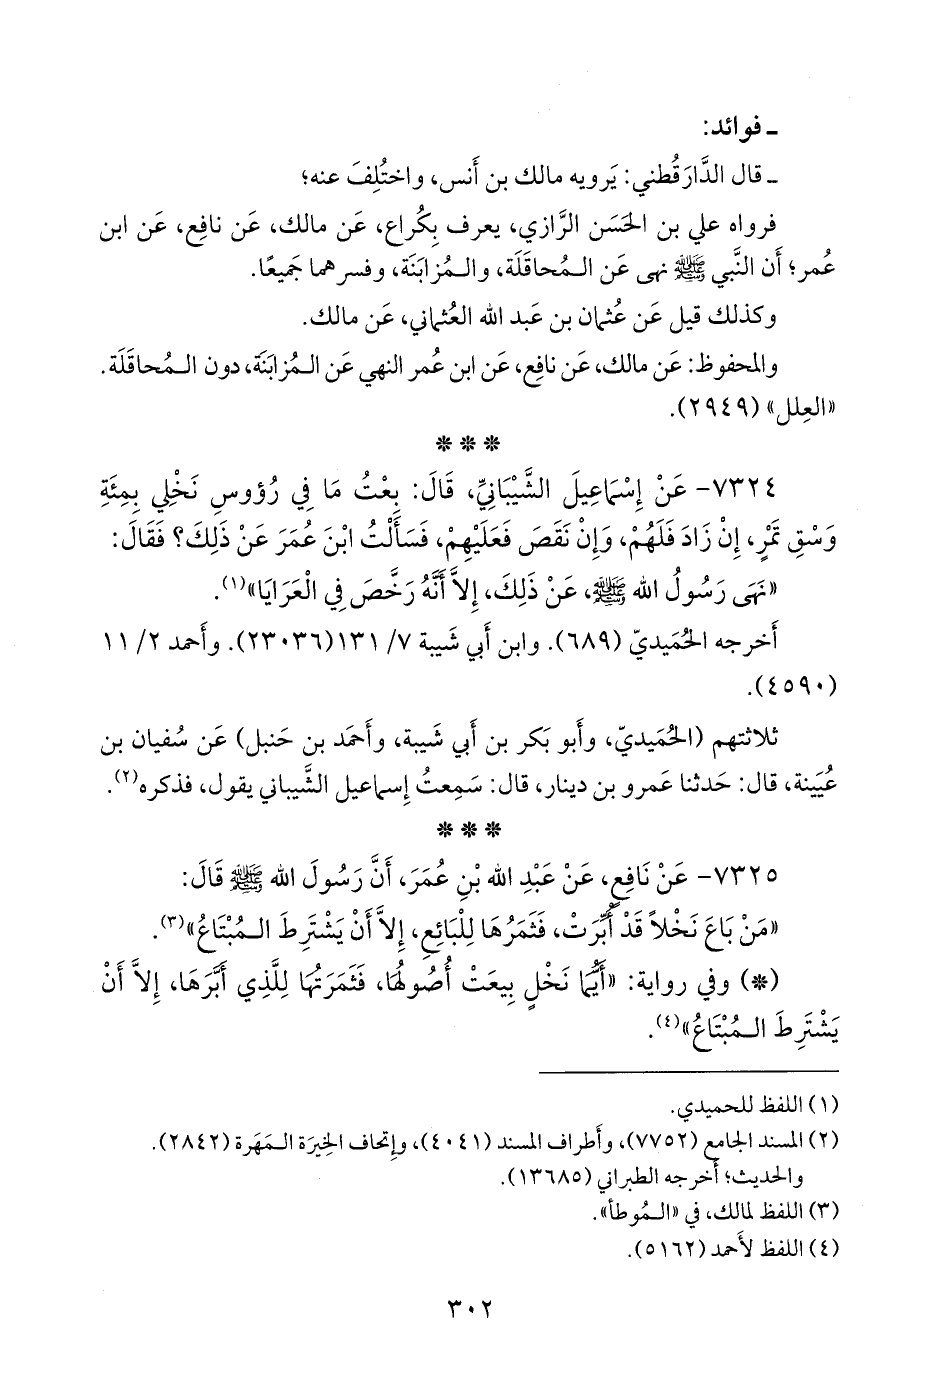 ـ فوائد:
ـ قال الدَّارَقُطني: يَرويه مالك بن أَنس، واختُلِفَ عنه؛
فرواه علي بن الحَسَن الرَّازي، يعرف بِكُراع، عَن مالك، عَن نافِع، عَن ابن
عُمر؛ أَن النَّبي ﷺ نهى عَن الـمُحاقَلَة، والـمُزابَنَة، وفسرهما جَميعًا.
وكذلك قيل عَن عُثمان بن عَبد الله العُثماني، عَن مالك.
والمحفوظ: عَن مالك، عَن نافِع، عَن ابن عُمر النهي عَن الـمُزابَنَة، دون الـمُحاقَلَة.
«العِلل» (٢٩٤٩).
* * *
٧٣٢٤- عَنْ إِسْمَاعِيلَ الشَّيْبَانِيِّ، قَالَ: بِعْتُ مَا فِي رُؤُوسِ نَخْلِي بِمِئَةِ
وَسْقِ تَمْرٍ، إِنْ زَادَ فَلَهُمْ، وَإِنْ نَقَصَ فَعَلَيْهِمْ، فَسَأَلْتُ ابْنَ عُمَرَ عَنْ ذَلِكَ؟ فَقَالَ:
«نَهَى رَسُولُ الله ﷺ، عَنْ ذَلِكَ، إِلاَّ أَنَّهُ رَخَّصَ فِي الْعَرَايَا»(١).
أَخرجه الحُمَيديّ (٦٨٩). وابن أَبي شَيبة ٧/ ١٣١(٢٣٠٣٦). وأَحمد ٢/ ١١
(٤٥٩٠).
ثلاثتهم (الحُمَيديّ، وأَبو بَكر بن أَبي شَيبة، وأَحمَد بن حَنبل) عَن سُفيان بن
عُيَينة، قال: حَدثنا عَمرو بن دينار، قال: سَمِعتُ إِسماعيل الشَّيباني يقول، فذكره(٢).
* * *
٧٣٢٥- عَنْ نَافِعٍ، عَنْ عَبْدِ الله بْنِ عُمَرَ، أَنَّ رَسُولَ الله ﷺ قَالَ:
«مَنْ بَاعَ نَخْلاً قَدْ أُبِّرَتْ، فَثَمَرُهَا لِلْبَائِعِ، إِلاَّ أَنْ يَشْتَرِطَ الـمُبْتَاعُ»(٣).
(*) وفي رواية: «أَيُّمَا نَخْلٍ بِيعَتْ أُصُولُهَا، فَثَمَرَتُهَا لِلَّذِي أَبَّرَهَا، إِلاَّ أَنْ
يَشْتَرِطَ الـمُبْتَاعُ»(٤).
(١) اللفظ للحميدي.
(٢) المسند الجامع (٧٧٥٢)، وأَطراف المسند (٤٠٤١)، وإِتحاف الخِيرَة الـمَهَرة (٢٨٤٢).
والحديث؛ أَخرجه الطبراني (١٣٦٨٥).
(٣) اللفظ لمالك، في «الـمُوطأ».
(٤) اللفظ لأَحمد (٥١٦٢).
٣٠٢